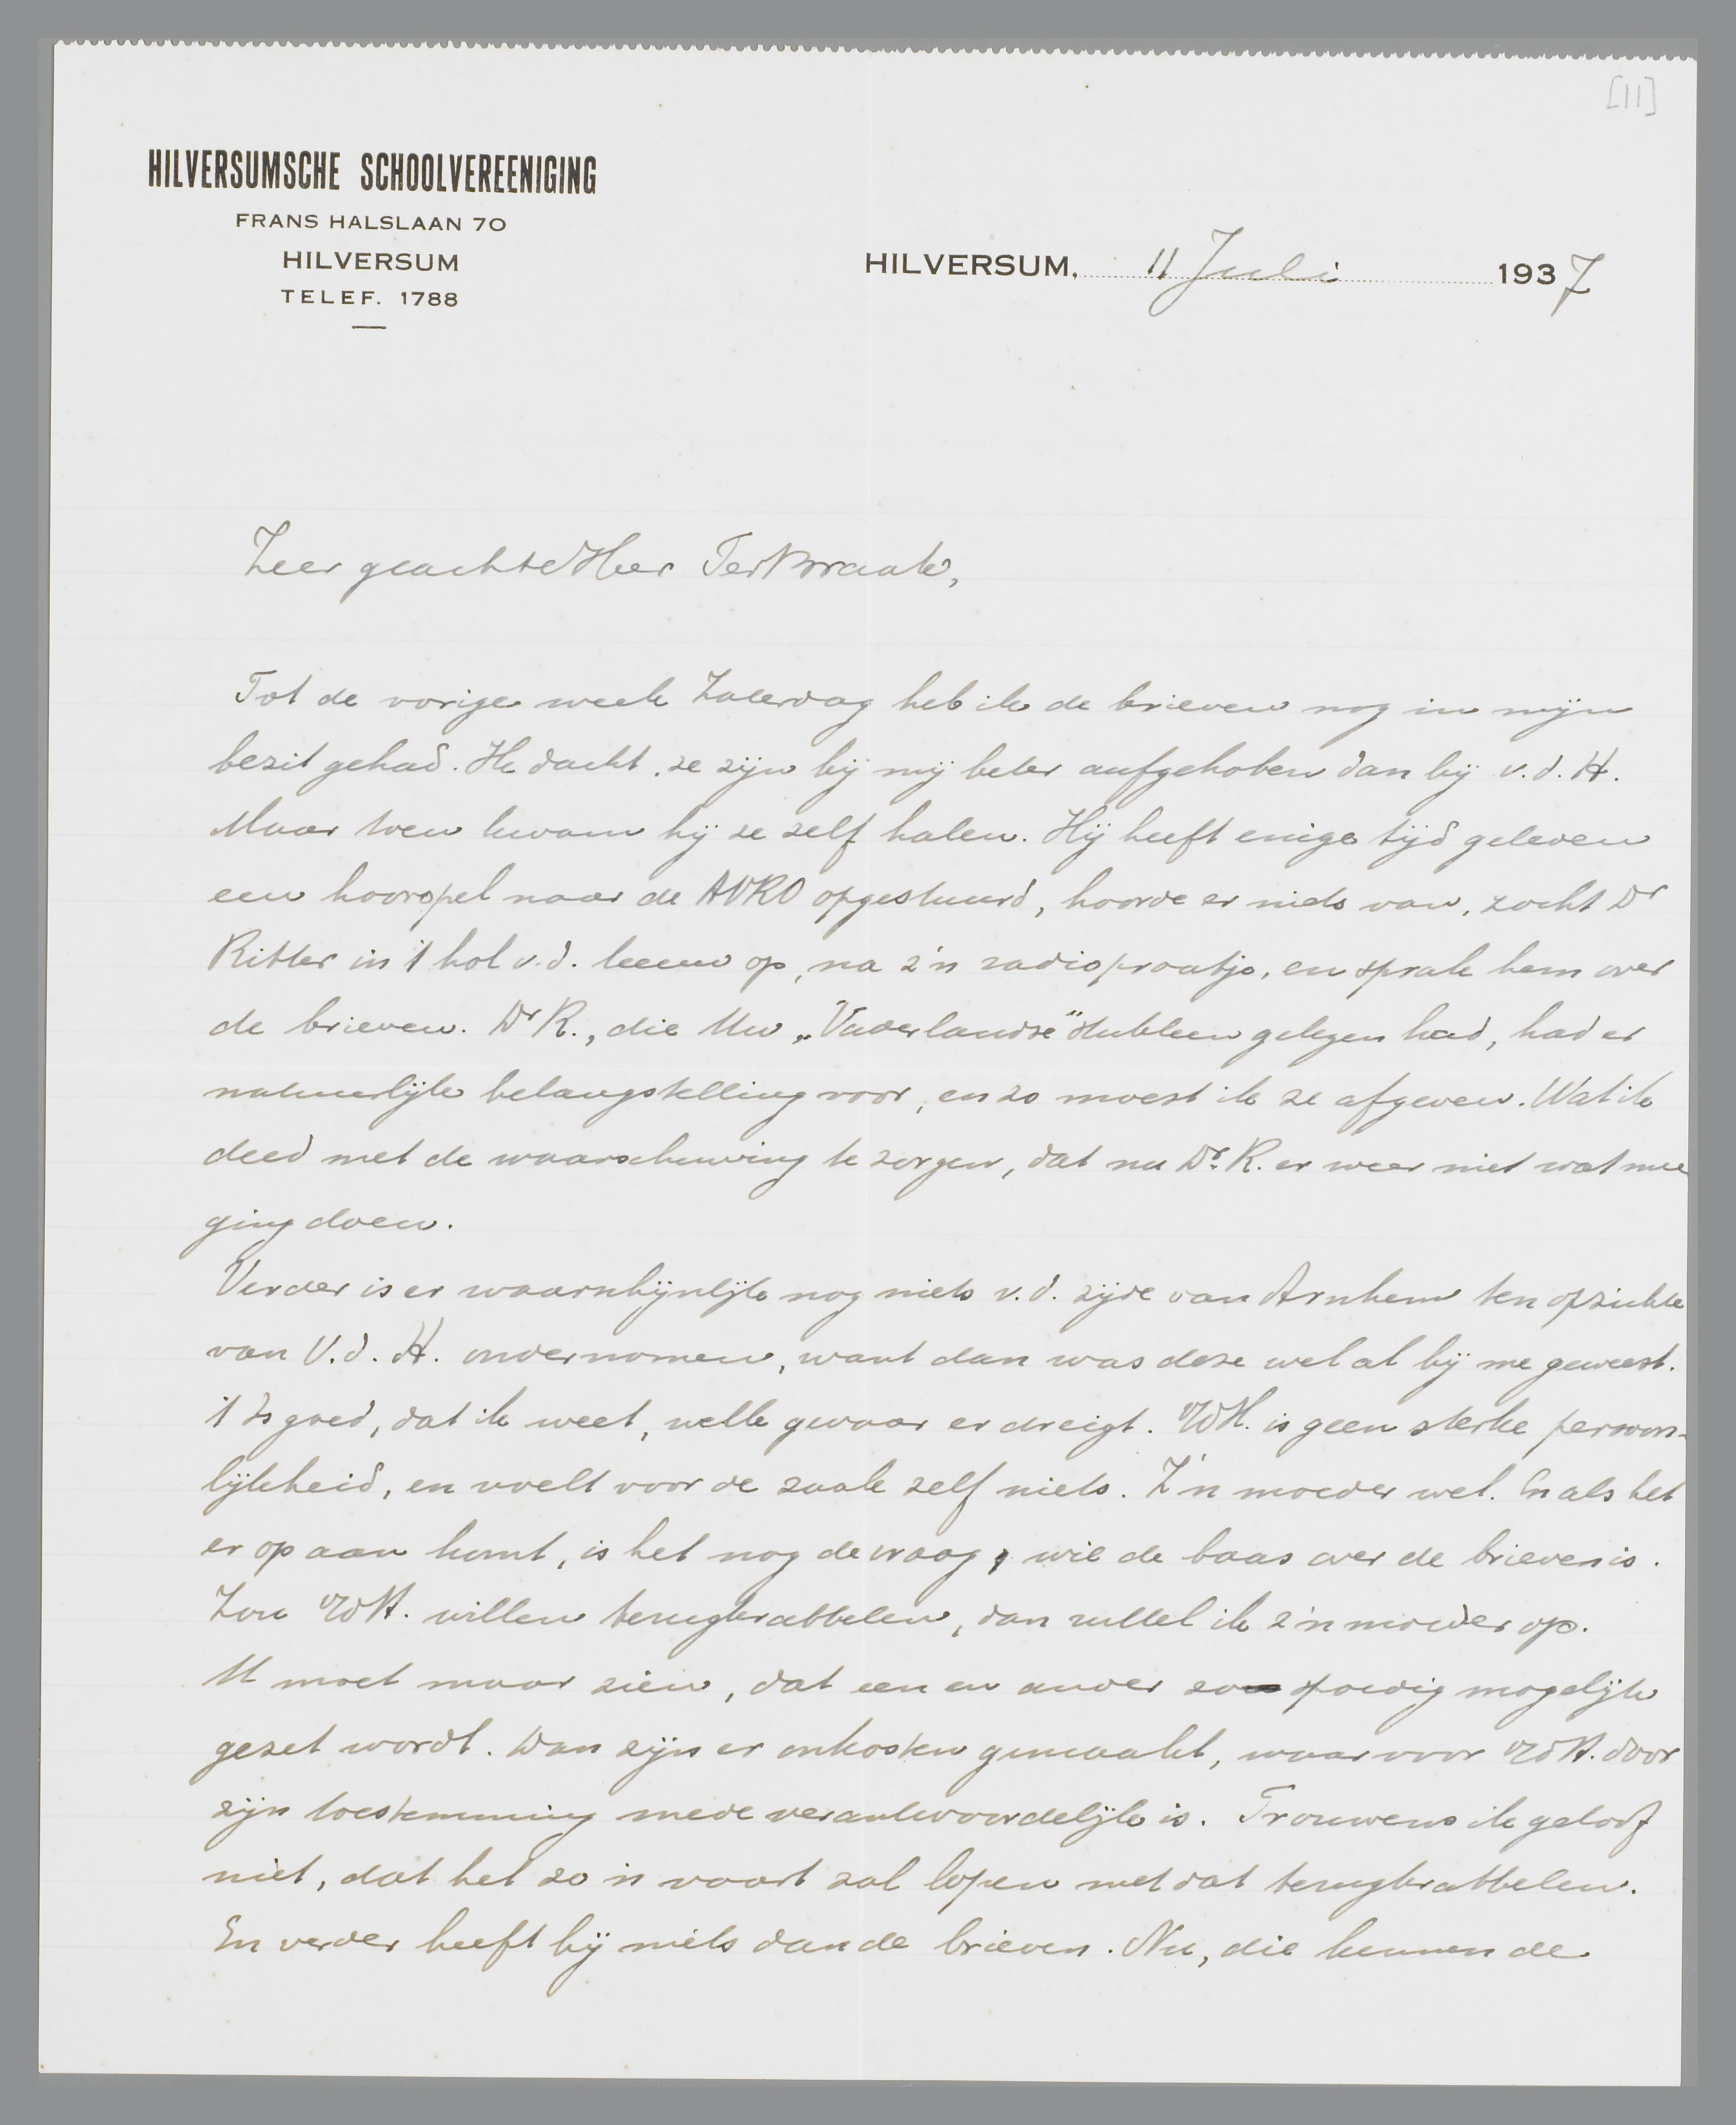 [11]
HILVERSUMSCHE SCHOOLVEREENIGING
FRANS HALSLAAN 70
HILVERSUM
TELEF. 1788
HILVERSUM, 11 Juli 1937
Zeer geachte Heer Ter Braak,
Tot de vorige week Zaterdag heb ik de brieven nog in mijn
bezit gehad. Ik dacht, ze zijn bij mij beter aufgehoben dan bij v.d. H.
Maar toen kwam hij ze zelf halen. Hij heeft enige tijd geleden
een hoorspel naar de AVRO opgestuurd, hoorde er niets van, zocht Dr
Ritter in 't hol v.d. leeuw op, na z'n radiopraatje, en sprak hem over
de brieven. Dr R., die Uw „Vaderlandse" stukken gelezen had, had er
natuurlijk belangstelling voor, en zo moest ik ze afgeven. Wat ik
deed met de waarschuwing te zorgen, dat nu Dr. R. er weer niet wat mee
ging doen.
Verder is er waarschijnlijk nog niets v.d. zijde van Arnhem ten opzichte
van V.d. H. ondernomen, want dan was deze wel al bij me geweest.
't Is goed, dat ik weet, welk gevaar er dreigt. VdH. is geen sterke persoon-
lijkheid, en voelt voor de zaak zelf niets. Z'n moeder wel. En als het
er op aan komt, is het nog de vraag, wie de baas over de brieven is.
Zou VdH. willen terugkrabbelen, dan ruttel ik z'n moeder op.
U moet maar zien, dat een en ander zo spoedig mogelijk
gezet wordt. Dan zijn er onkosten gemaakt, waarvoor VdH. door
zijn toestemming mede verantwoordelijk is. Trouwens ik geloof
niet, dat het zo 'n vaart zal lopen met dat terugkrabbelen.
En verder heeft hij niets dan de brieven. Nu, die kunnen de